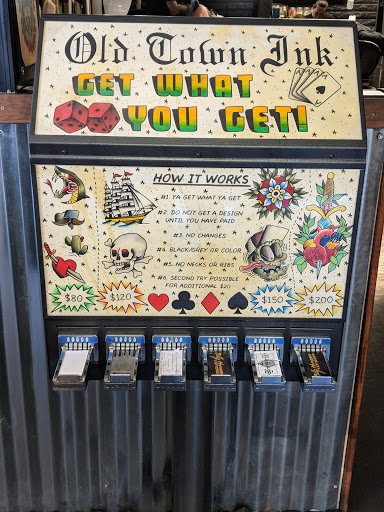 Old Town Ink
GET WHAT
YOU GET!
HOW IT WORKS
#1. YA GET WHAT YA GET
#2. DO NOT GET A DESIGN
UNTIL YOU HAVE PAID
#3. NO CHANGES
#4. BLACK/GREY OR COLOR
#5. NO NECKS OR RIBS
#6. SECOND TRY POSSIBLE
FOR ADDITIONAL $20
$80
$120
$150
$200